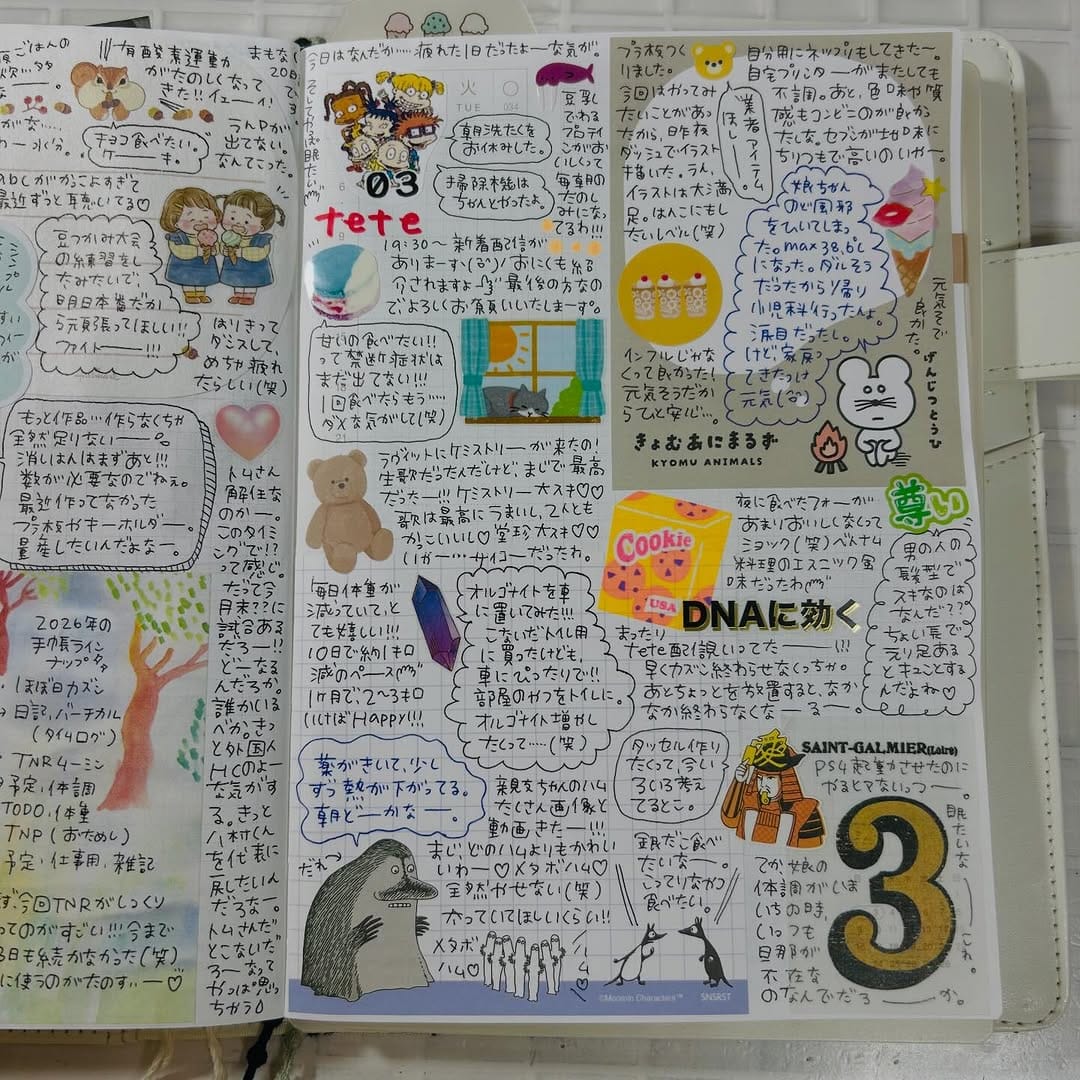 夜ごはんの
有酸素運動
がたのしくなって
きた!!イェーイ!
まもな
20日
チョコ食べたい。
ケーーーキ。
うんDが
出てない。
なんてこった。
abcがかっこよすぎて
最近ずっと聴いてる♡
豆つかみ大会
の練習をし
たみたいで、
明日本番だか
ら頑張ってほしい!!
ファイトーーー!!!
はりきって
ダンスして、
めちゃ疲れ
たらしい(笑)
もっと作品…作らなくちゃ
全然足りないーーー。
消しはんはまずあと!!!
数が必要なのでねぇ。
最近作ってなかった
プラ板やキーホルダー。
量産したいんだよなー。
トムさん
解任な
のかー。
このタイミ
ングで!?
って感じ。
だって今
月末??に
試合ある
だろー!!
どーなる
んだろか。
誰がいる
べか。きっ
と外国人
HCのよー
な気がす
る。きっと
八村くん
を代表に
戻したいん
だろなー。
トムさんだ
とこないだ
ろ〜なって
やっぱ思っ
ちゃう
2026年の
手帳ライン
ナップ
・ほぼ日カズン
→日記、バーチカル
(タイムログ)
TNRムーミン
予定、体調
TODO、体重
TNP(おためし)
予定、仕事用、雑記
今回TNRがしっくり
ってのがすごい!!!今まで
日も続かなかった(笑)
に使うのがたのすぃー♡
今日はなんだか…疲れた1日だったよーな気が。
そしてやっぱ眠たい
火
TUE
034
03
朝洗たくを
お休みした。
掃除機は
ちゃんとやったよ。
豆乳
でわる
プロテイ
ンがお
いしくっ
て毎朝の
たのし
みになっ
てるわ!!!
tete
19:30〜新着配信が
ありまーす。おにくも紹
介されますよー 最後の方なの
でよろしくお願いいたしまーす。
甘いの食べたい!!
って禁断症状は
まだ出てない!!!
1回食べたらもう…
ダメな気がして(笑)
ラヴィットにケミストリーが来たの!
生歌だったんだけど、まじで最高
だったー!!!ケミストリー大スキ♡♡
歌は最高にうまいし、2人とも
かっこいいし♡堂珍大スキ♡♡
いやー…サイコーだったわ。
毎日体重が
減っていて、と
ても嬉しい!!!
10日で約1キロ
減のペース
1ヶ月で、2〜3キロ
いけばHappy!!!
オルゴナイトを車
に置いてみた!!!
こないだトイレ用
に買ったけども、
車にぴったり!!
部屋のやつをトイレに。
オルゴナイト増やし
たくって……(笑)
薬がきいて、少し
ずつ熱が下がってる。
朝どーかなーー。
親友ちゃんのハム
たくさん画像と
動画きたー!!!
まじ、どのハムよりもかわい
いわー♡メタボハム♡
全然やせない(笑)
太っていてほしいくらい!!
メタボ
ハム♡
だれ
タッセル作り
たくって、今い
ろいろ考え
てるとこ。
銀だこ食べ
たいなー。
こってりなやつ
食べたい。
©Moomin Characters™
SNSRST
プラ板つく
りました。
今回はやってみ
たいことがあっ
たから、昨夜
ダッシュでイラスト
描いた。うん、
イラストは大満
足。はんこにもし
たいレベル(笑)
業者アイテム。
ほしー。
自分用にネップリもしてきた〜
自宅プリンターがまたしても
不調。あと、色味や質
感もコンビニのが良かっ
たしな。セブンが色味に
ちりつもで高いのいやー。
娘ちゃん
のど風邪
をひいてしまっ
た。max 38.6℃
になった。ダルそう
だったから帰り
小児科行ったんよ。
涙目だったし。
けど、家戻っ
てきたっけ
元気
元気そうで
良かた。
インフルじゃな
くって良かった!
元気そうだか
らひと安心…
きょむあにまるず
KYOMU ANIMALS
げんじつとうひ
Cookie
USA
夜に食べたフォーが
あまりおいしくなくって
ショック(笑)ベトナム
料理のエスニック風
味だったわ
尊い
男の人の
髪型で
スキなのは
なんだ??
ちょい長で
えり足ある
とキュンとする
んだよね♡
DNAに効く
まったり
tete配信観ていってーーー!!!
早くカズン終わらせなくっちゃ。
あとちょっとを放置すると、なか
なか終わらなくなーーるーー。
愛
SAINT-GALMIER(Loire)
PS4起動させたのに
やるヒマないっつーー
眠たいなーーーこれ。
3
てか、娘の
体調がいま
いちの時、
いっつも
旦那が
不在な
のなんでだろーーーか。